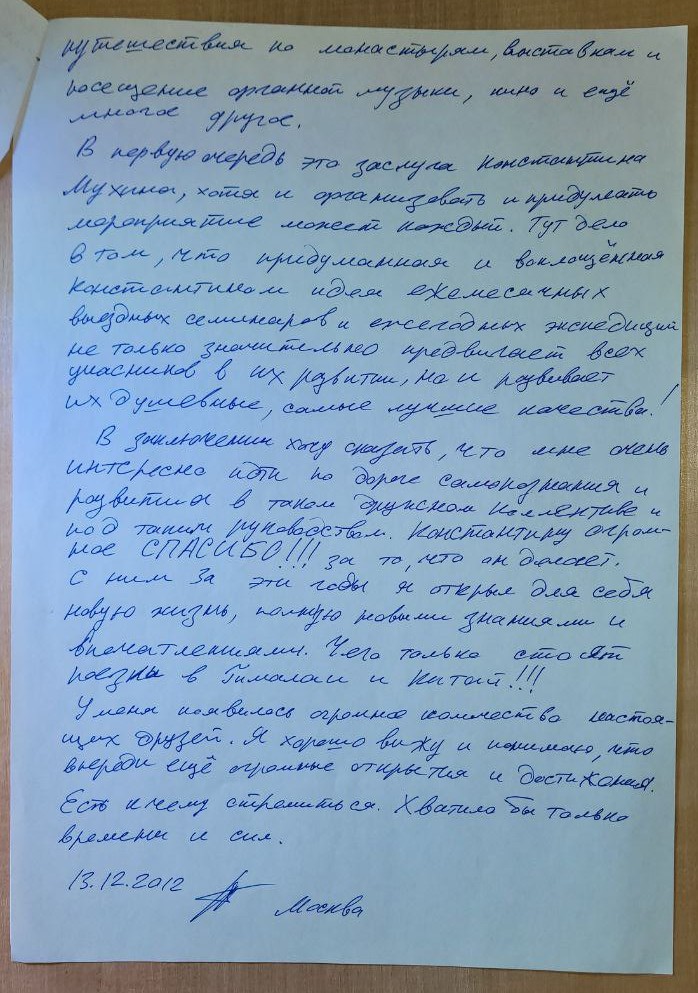 путешествия по монастырям, выставкам и
посещение органной музыки, кино и ещё
многое другое.
В первую очередь это заслуга Константина
Мухина, хотя и организовать и придумать
мероприятие может каждый. Тут дело
в том, что придуманная и воплощённая
Константином идея ежемесячных
выездных семинаров и ежегодных экспедиций
не только значительно продвигает всех
участников в их развитии, но и развивает
их душевные, самые лучшие качества!
В заключении хочу сказать, что мне очень
интересно идти по дороге самопознания и
развития в таком дружном коллективе и
под таким руководством. Константину огром-
ное СПАСИБО!!! за то, что он делает.
С ним за эти годы я открыл для себя
новую жизнь, полную новыми знаниями и
впечатлениями. Чего только стоят
поездки в Гималаи и Китай!!!
У меня появилось огромное количество настоя-
щих друзей. Я хорошо вижу и понимаю, что
впереди ещё огромные открытия и достижения.
Есть к чему стремиться. Хватило бы только
времени и сил.
13.12.2012
Москва